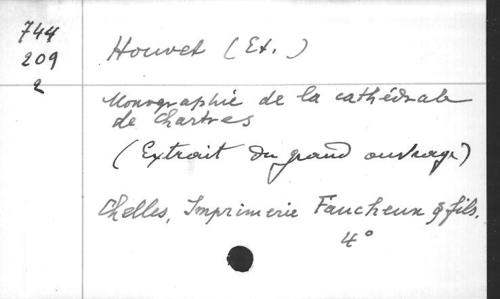 744
209
2
Houvet (Et.)
Monographie de la cathédrale
de Chartres
(Extrait du grand ouvrage)
Chelles, Imprimerie Faucheux & fils.
4°